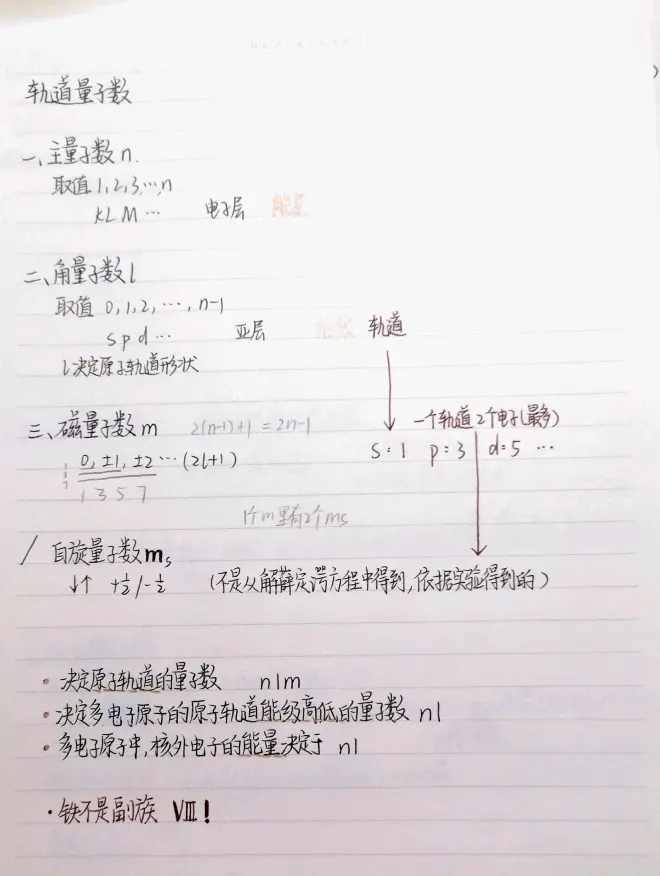 轨道量子数
一、主量子数 n.
取值 1, 2, 3, …, n
K L M … 电子层 能层
二、角量子数 l
取值 0, 1, 2, …, n-1
s p d … 亚层 能级 轨道
l 决定原子轨道形状
一个轨道2个电子(最多)
三、磁量子数 m 2(n-1)+1 = 2n-1
s=1 p=3 d=5 …
0, ±1, ±2 … (2l+1)
1 3 5 7
1个m里有2个ms
/ 自旋量子数 ms
↓↑ +½/-½ (不是从解薛定谔方程中得到,依据实验得到的)
· 决定原子轨道的量子数 n l m
· 决定多电子原子的原子轨道能级高低的量子数 n l
· 多电子原子中,核外电子的能量决定于 n l
· 铁不是副族 VIII!